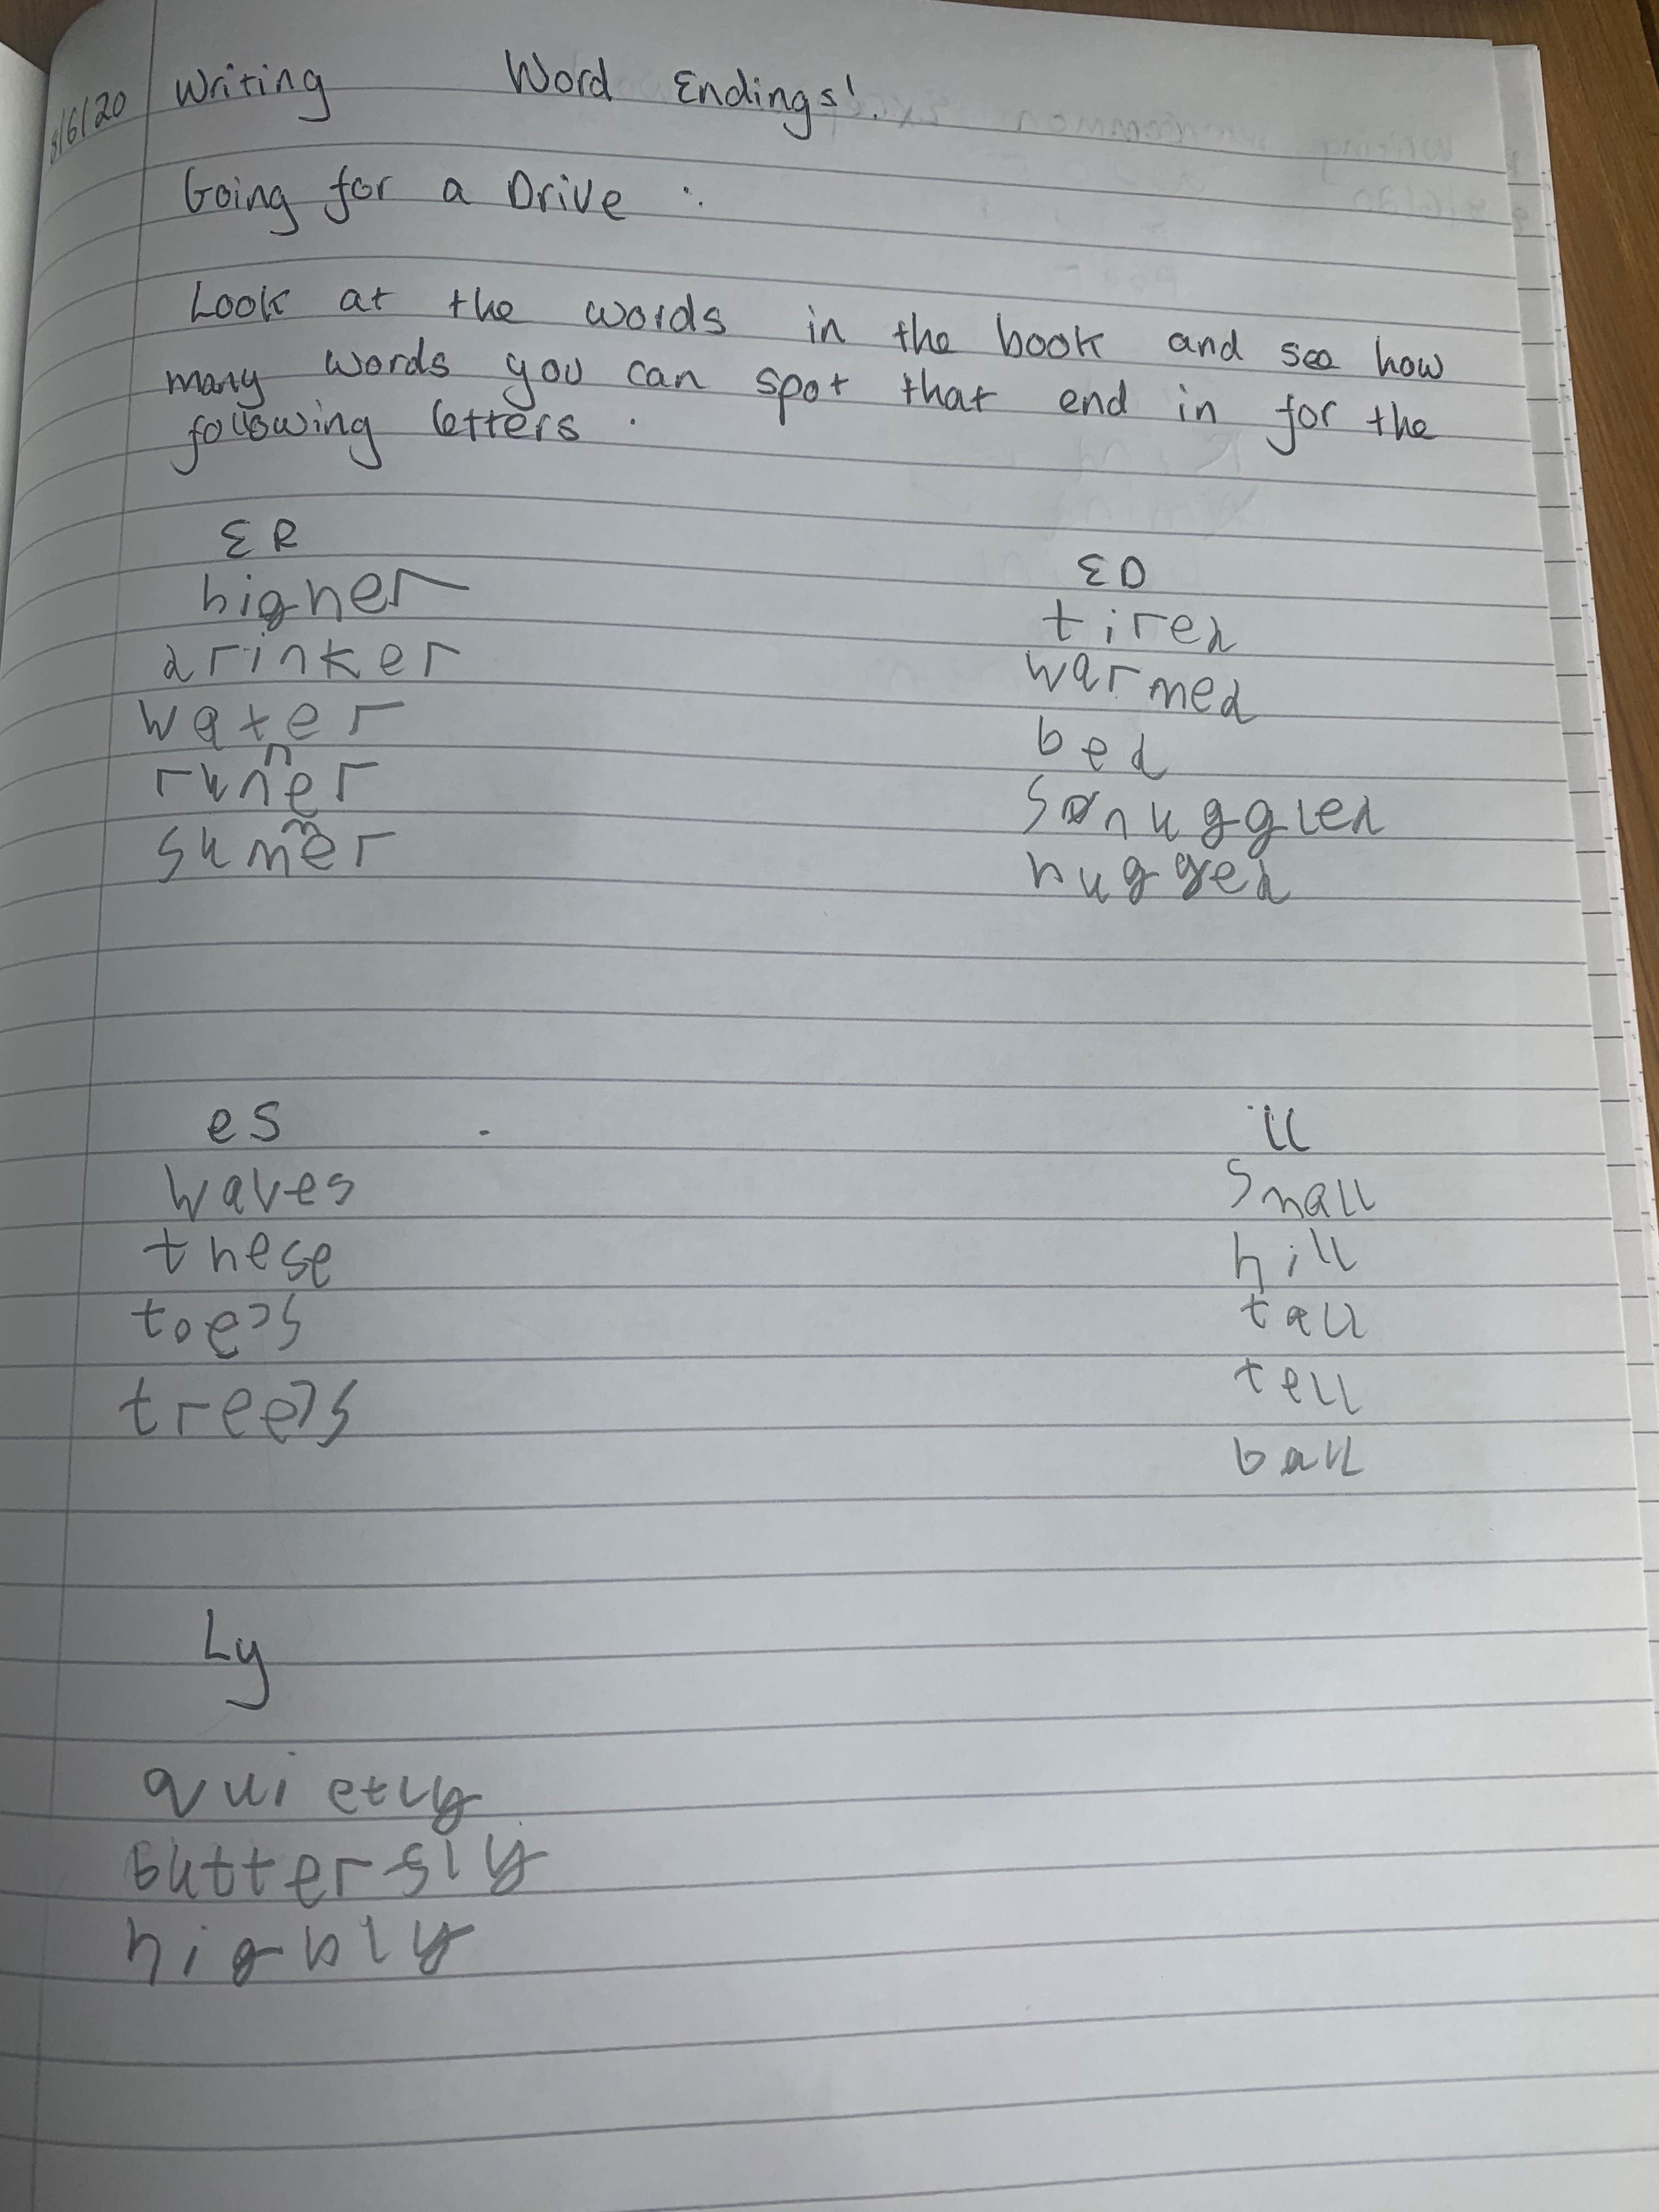 8/6/20 Writing Word Endings!
Going for a Drive :
Look at the words in the book and see how
many words you can spot that end in for the
following letters .
ER
higher
drinker
water
runner
summer
ED
tired
warmed
bed
snuggled
hugged
es
waves
these
toes
trees
ll
small
hill
tall
tell
ball
Ly
quietly
butterfly
highly